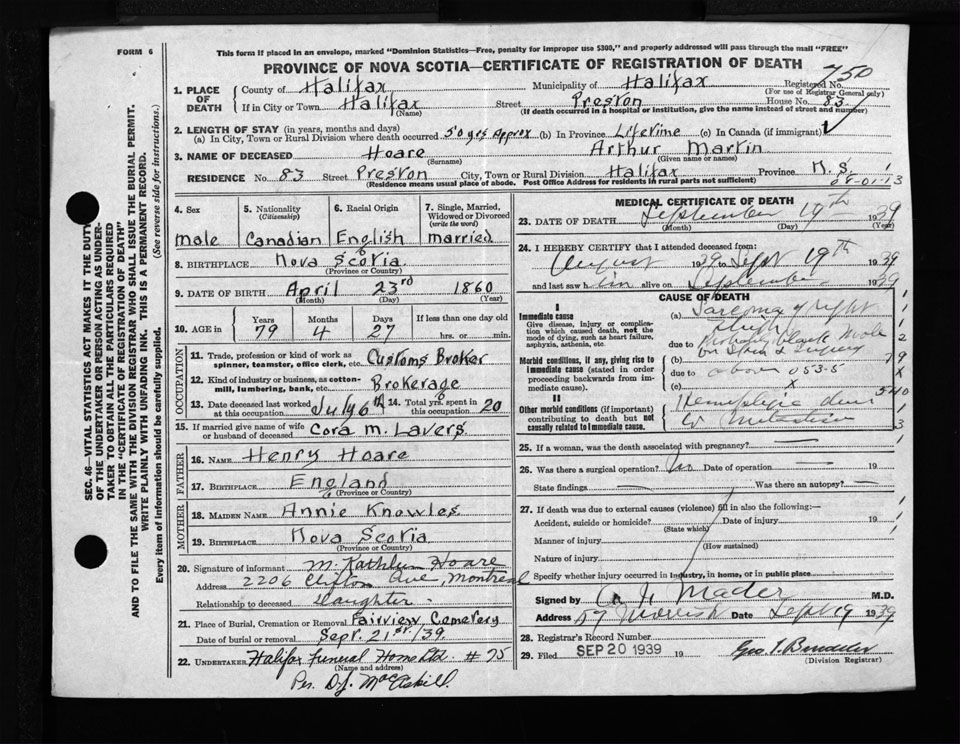 FORM 6
This form if placed in an envelope, marked "Dominion Statistics—Free, penalty for improper use $300," and properly addressed will pass through the mail "FREE"
PROVINCE OF NOVA SCOTIA—CERTIFICATE OF REGISTRATION OF DEATH
750
1. PLACE OF DEATH
County of Halifax Municipality of Halifax Registered No.
(For use of Registrar General only)
If in City or Town Halifax Street Preston House No. 83
(Name) (If death occurred in a hospital or institution, give the name instead of street and number)
2. LENGTH OF STAY (in years, months and days)
(a) In City, Town or Rural Division where death occurred 50 yrs Approx (b) In Province Lifetime (c) In Canada (if immigrant)
3. NAME OF DECEASED Hoare Arthur Martin
(Surname) (Given name or names)
RESIDENCE No. 83 Street Preston City, Town or Rural Division Halifax Province N.S.
(Residence means usual place of abode. Post Office Address for residents in rural parts not sufficient)
08-01-13
4. Sex 5. Nationality (Citizenship) 6. Racial Origin 7. Single, Married, Widowed or Divorced (write the word)
male Canadian English married
8. BIRTHPLACE Nova Scotia
(Province or Country)
9. DATE OF BIRTH April 23rd 1860
(Month) (Day) (Year)
10. AGE in Years Months Days If less than one day old
79 4 27 hrs. or min.
OCCUPATION
11. Trade, profession or kind of work as spinner, teamster, office clerk, etc. Customs Broker
12. Kind of industry or business, as cotton-mill, lumbering, bank, etc. Brokerage
13. Date deceased last worked at this occupation July 6th 14. Total yrs. spent in this occupation 20
15. If married give name of wife or husband of deceased Cora M. Lavers.
FATHER
16. NAME Henry Hoare
17. BIRTHPLACE England
(Province or Country)
MOTHER
18. MAIDEN NAME Annie Knowles
19. BIRTHPLACE Nova Scotia
(Province or Country)
20. Signature of informant M. Kathleen Hoare
Address 2206 Clifton Ave, Montreal
Relationship to deceased daughter
21. Place of Burial, Cremation or Removal Fairview Cemetery
Date of burial or removal Sept. 21st/39
22. UNDERTAKER Halifax Funeral Home Ltd. #75
(Name and address)
Per. D.J. MacAskill.
MEDICAL CERTIFICATE OF DEATH
23. DATE OF DEATH September 19th 1939
(Month) (Day) (Year)
24. I HEREBY CERTIFY that I attended deceased from:
August 1939 to Sept 19th 1939
and last saw him alive on September 1939
CAUSE OF DEATH
I
Immediate cause
Give disease, injury or complication which caused death, not the mode of dying, such as heart failure, asphyxia, asthenia, etc.
(a) Sarcoma of right thigh
due to probably black mole
Morbid conditions, if any, giving rise to immediate cause (stated in order proceeding backwards from immediate cause).
(b)
due to above 053-5
(c) x
II
Other morbid conditions (if important) contributing to death but not causally related to immediate cause.
Hemiplegia due
to metastasis
540
25. If a woman, was the death associated with pregnancy?
26. Was there a surgical operation? No Date of operation 19
State findings Was there an autopsy?
27. If death was due to external causes (violence) fill in also the following:—
Accident, suicide or homicide? Date of injury 19
(State which)
Manner of injury (How sustained)
Nature of injury
Specify whether injury occurred in industry, in home, or in public place
Signed by Mader M.D.
Address 57 Date Sept 19 1939
28. Registrar's Record Number
29. Filed SEP 20 1939 19
(Division Registrar)
SEC. 46—VITAL STATISTICS ACT MAKES IT THE DUTY
OF THE UNDERTAKER OR PERSON ACTING AS UNDERTAKER TO OBTAIN ALL THE PARTICULARS REQUIRED
IN THE "CERTIFICATE OF REGISTRATION OF DEATH"
AND TO FILE THE SAME WITH THE DIVISION REGISTRAR WHO SHALL ISSUE THE BURIAL PERMIT.
WRITE PLAINLY WITH UNFADING INK. THIS IS A PERMANENT RECORD.
Every item of information should be carefully supplied. (See reverse side for instructions.)